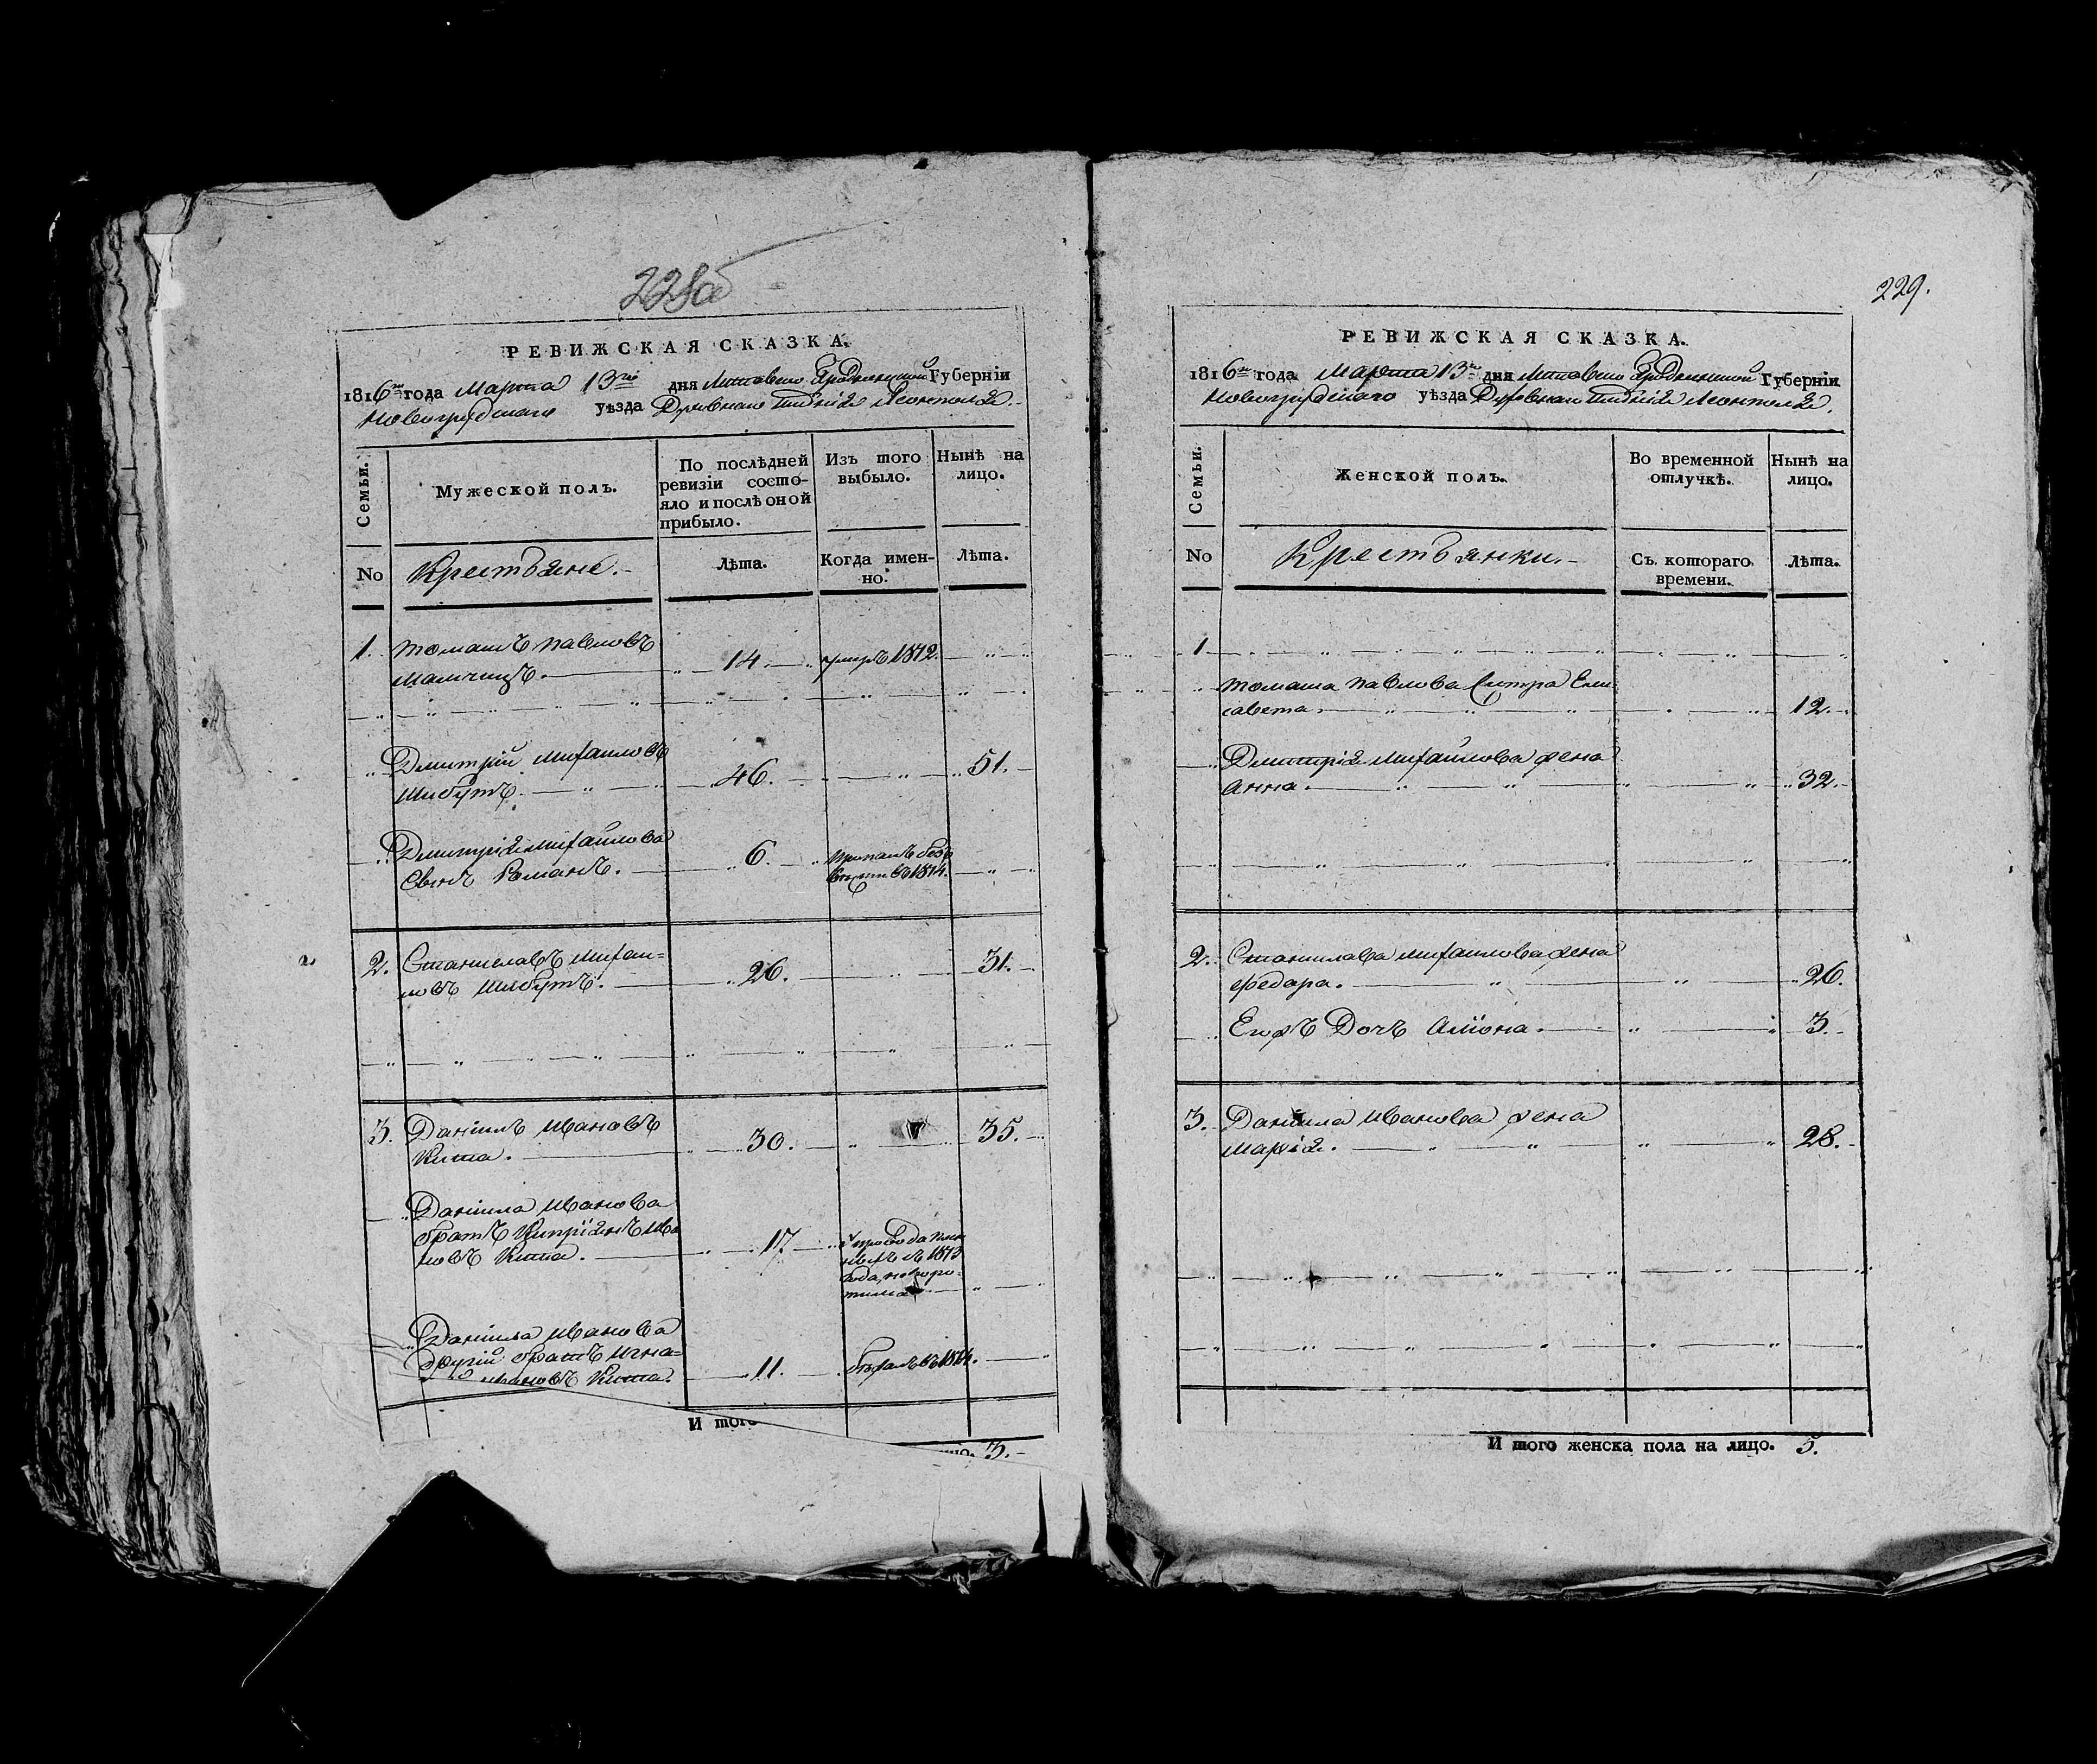 228об
РЕВИЖСКАЯ СКАЗКА.
1816го года Марта 13го дня Литовско Гродненской Губерніи
Новогрудскаго уѣзда Леонполя.
Семьи.
Мужеской полъ.
По послѣдней
ревизіи состо-
яло и послѣ оной
прибыло.
Изъ того
выбыло.
Нынѣ на
лицо.
No
Крестьяне.
Лѣта.
Когда имен-
но.
Лѣта.
1. Томашъ Павловъ
14. умръ 1812.
Дмитрій Михаиловъ
Шибутъ. 46. 51.
Дмитрія Михайлова
Сынъ Романъ. 6. пропалъ безъ
вѣсти въ 1814.
2. Станиславъ Михаи-
ловъ Шибутъ. 26. 31.
3. Даніилъ Ивановъ
Кита. 30. 35.
Даніила Иванова
братъ Кипріянъ Ива
новъ Кита. 17.
1813
года,
Даніила Иванова
другій братъ Игна-
Ивановъ Кита. 11. бѣжалъ въ 1814.
И того
3.
229.
РЕВИЖСКАЯ СКАЗКА.
1816го года Марта 13го дня Литовско Гродненской Губерніи
Новогрудскаго уѣзда Леонполя.
Семьи.
Женской полъ.
Во временной
отлучкѣ.
Нынѣ на
лицо.
No
Крестьянки.
Съ котораго
времени.
Лѣта.
1
Томаша Павлова Систра Ели-
савета. 12.
Дмитрія Михайлова жена
Анна. 32.
2. Станислава Михаилова жена
Федара. 26.
Егожъ Дочъ Алiона. 3.
3. Даніила Иванова жена
Марія. 28.
И того женска пола на лицо. 5.